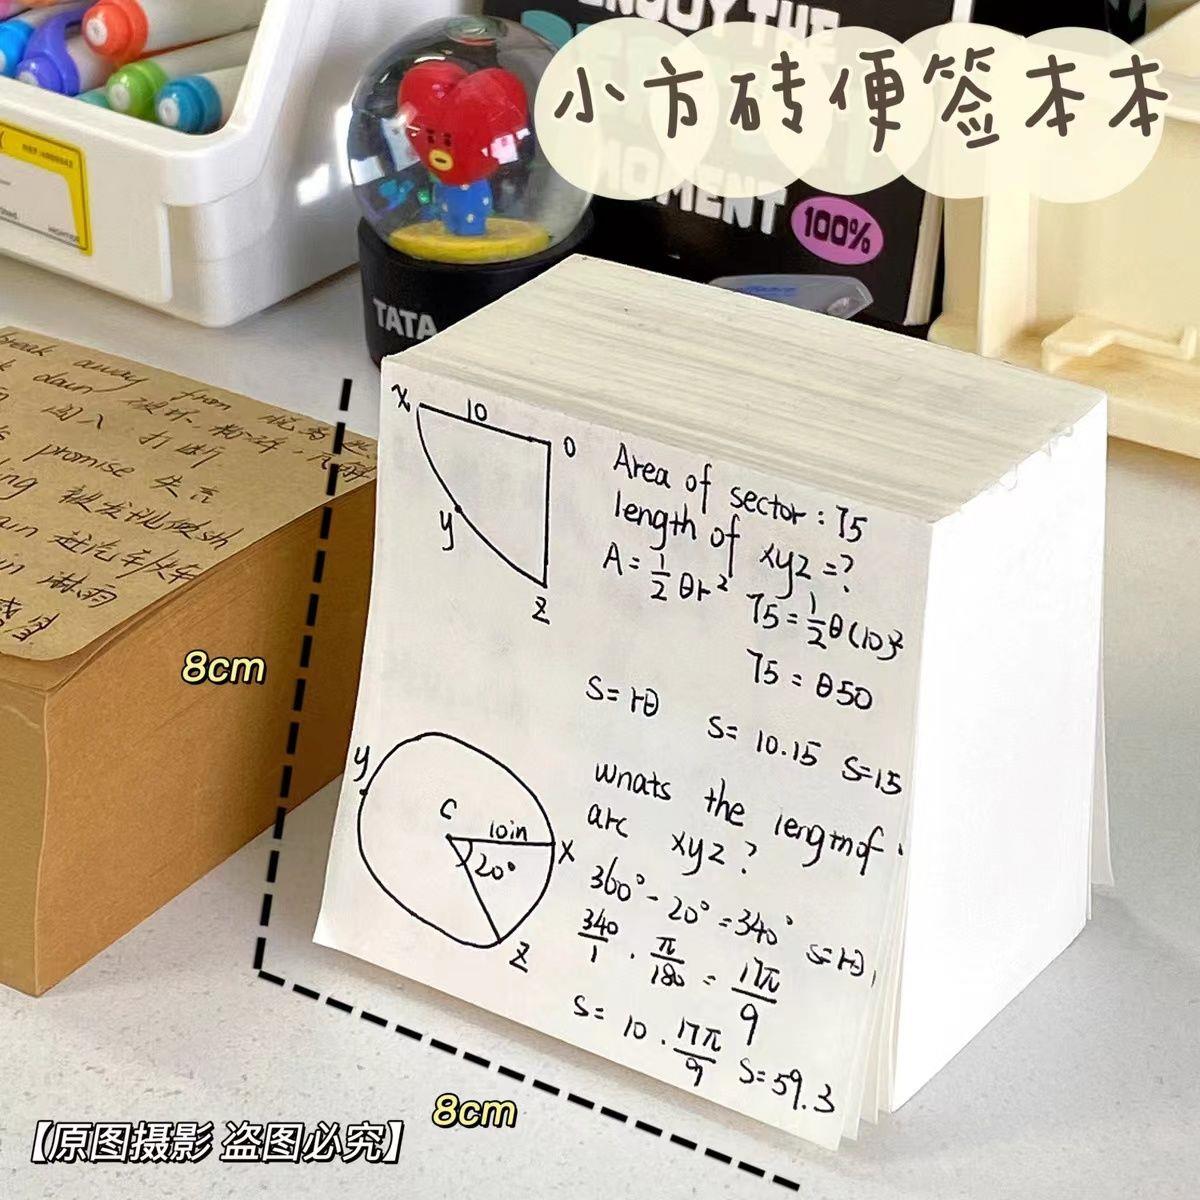 小方砖便签本本
ENJOY THE
MOMENT
100%
TATA
break away from
down 破坏
闯入 打断
promise 失言
淋雨
8cm
x 10 0
y
z
Area of sector : 75
length of xyz = ?
A = 1/2 θr²
75 = 1/2 θ(10)²
75 = θ50
S = rθ S = 10.15 S=15
y
c
10in
x
20°
z
wnats the lengthof
arc xyz ?
360° - 20° = 340° s=rθ,
340/1 . π/180 = 17π/9
S = 10 . 17π/9 S=59.3
8cm
【原图摄影 盗图必究】